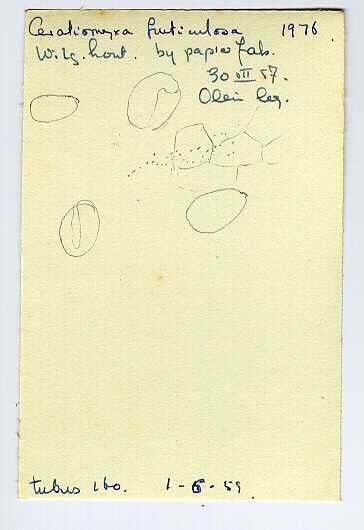 Ceratiomyxa fruticulosa 1976
Wilg. hout. by papierfab.
30 VII 57.
leg.
tubus 160. 1-6-59.